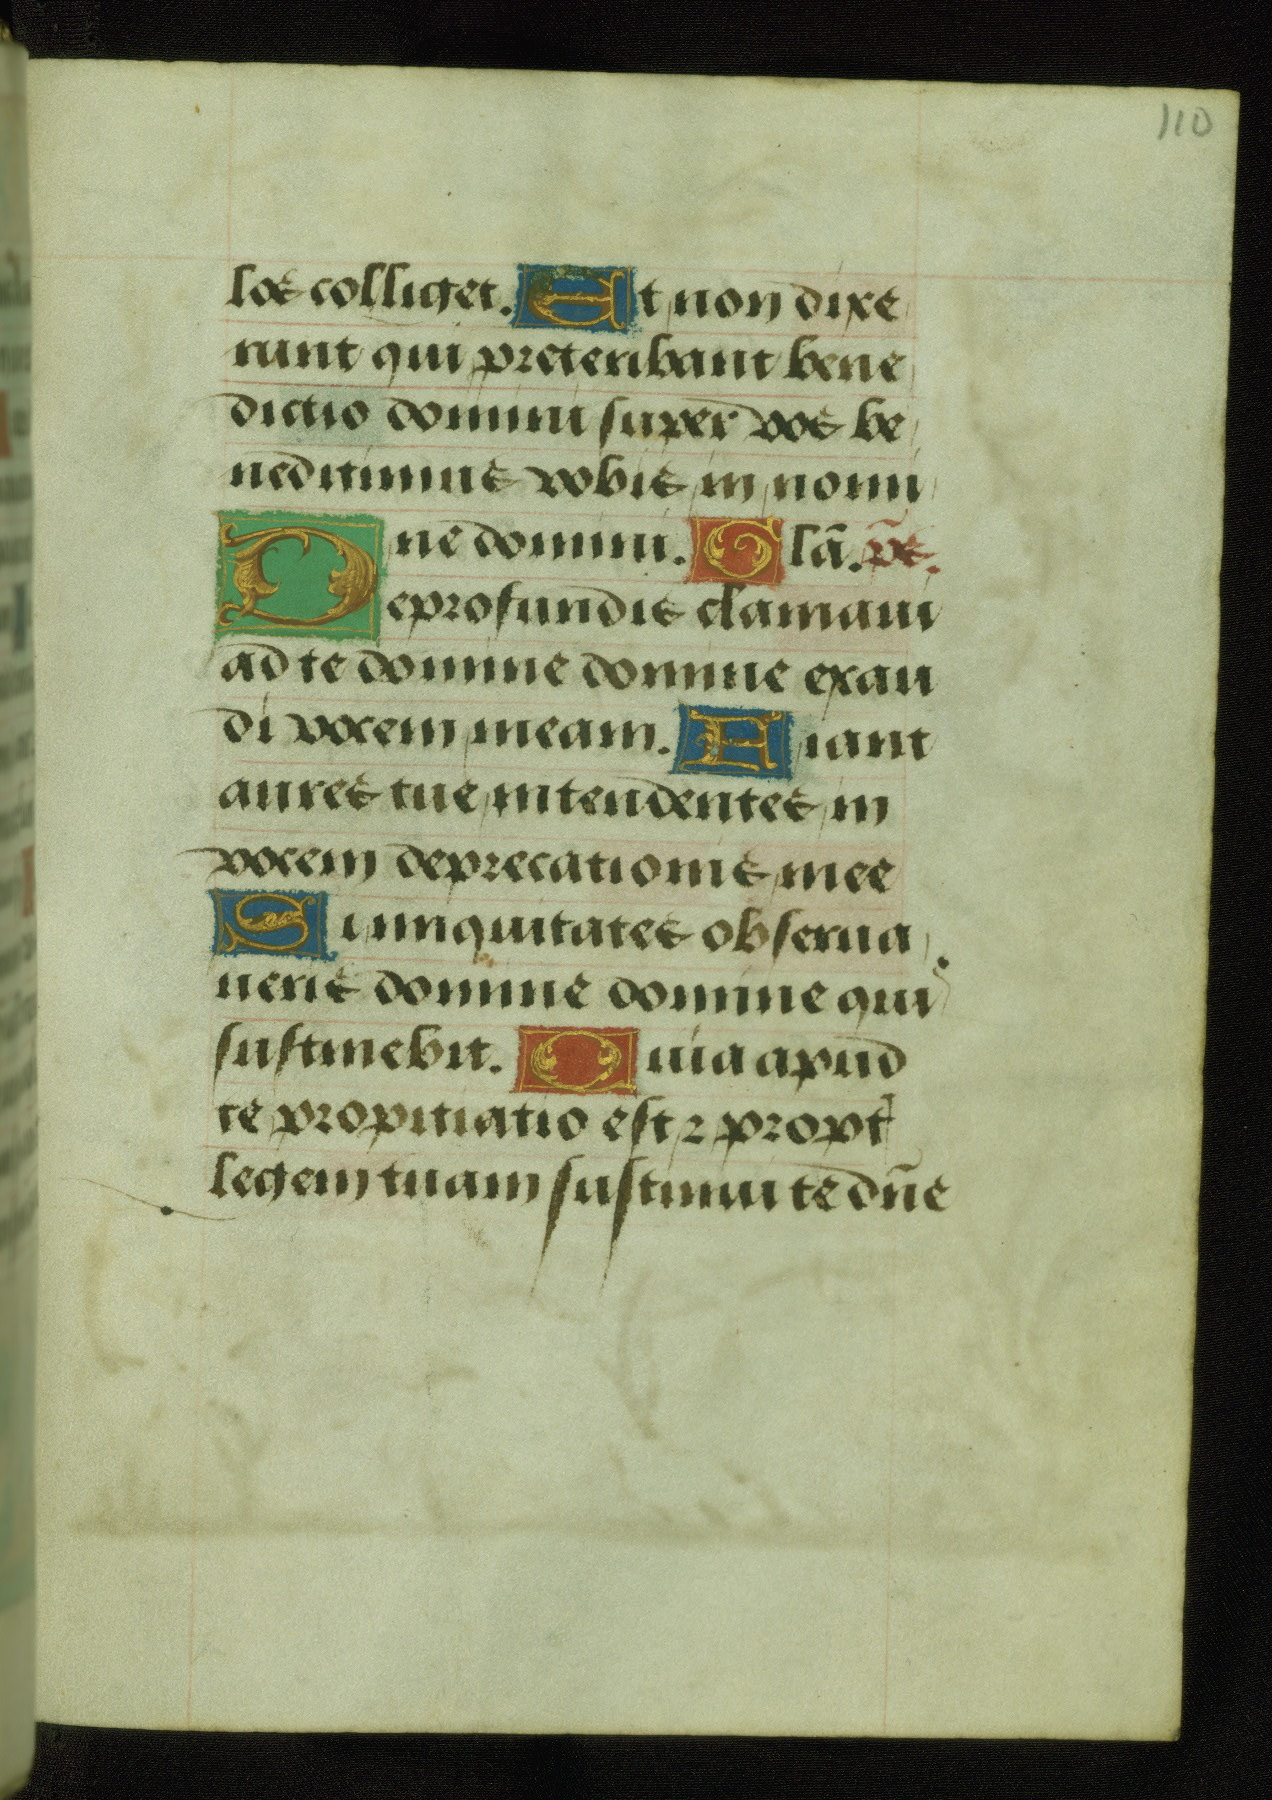 110
los colliget. Et non dixe
runt qui preteribant bene
dictio domini super vos be
nediximus vobis in nomi
ne domini. Glã. ps̃.
De profundis clamaui
ad te domine domine exau
di vocem meam. Fiant
aures tue intendentes in
vocem deprecationis mee
Si iniquitates obserua
ueris domine domine quis
sustinebit. Quia apud
te propitiatio est ⁊ propt̃
legem tuam sustinui te dñe